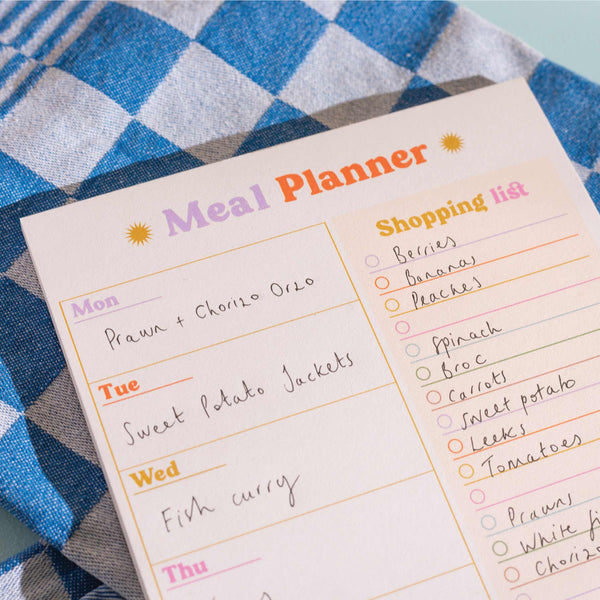 Meal Planner
Mon
Prawn + Chorizo Orzo
Tue
Sweet Potato Jackets
Wed
Fish curry
Thu
Shopping list
Berries
Bananas
Peaches
Spinach
Broc
Carrots
Sweet potato
Leeks
Tomatoes
Prawns
White
Chorizo